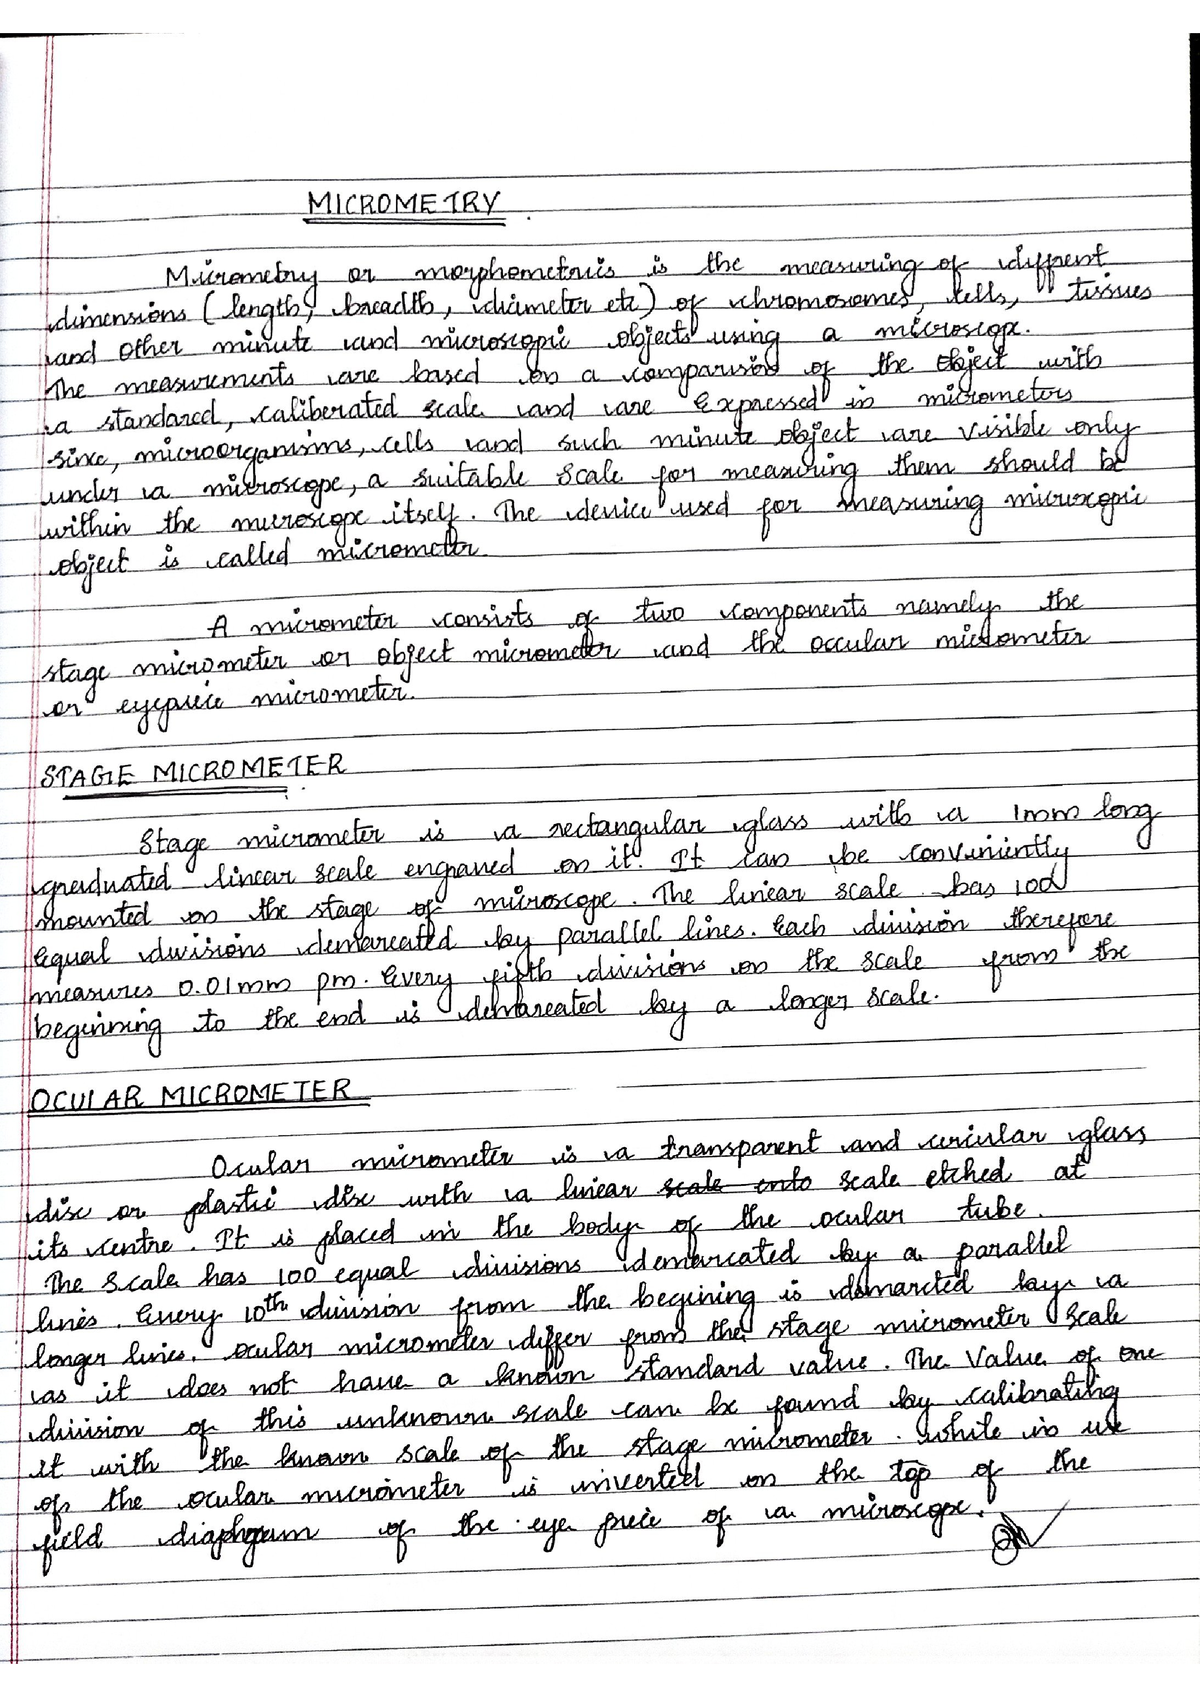 MICROMETRY
Micrometry or morphometrics is the measuring of different
dimensions (length, breadth, diameter etc) of chromosomes, cells, tissues
and other minute and microscopic objects using a microscope.
The measurements are based on a comparison of the object with
a standared, caliberated scale and are expressed in micrometers
since, microorganisms, cells and such minute object are visible only
under a microscope, a suitable scale for measuring them should be
within the microscope itself. The device used for measuring microscopic
object is called micrometer
A micrometer consists of two components namely the
stage micrometer or object micrometer and the occular micrometer
or eyepiece micrometer.
STAGE MICROMETER
Stage micrometer is a rectangular glass with a 1mm long
graduated linear scale engraved on it. It can be conveniently
mounted on the stage of microscope. The linear scale has 100
equal divisions demarcated by parallel lines. Each division therefore
measures 0.01mm pm. Every fifth divisions on the scale from the
beginning to the end is demarcated by a longer scale.
OCULAR MICROMETER
Ocular micrometer is a transparent and circular glass
disc or plastic disc with a linear scale onto scale etched at
its centre. It is placed in the body of the ocular tube.
The scale has 100 equal divisions demarcated by a parallel
lines. Every 10th division from the begining is demarcted by a
longer lines. Ocular micrometer differ from the stage micrometer scale
as it does not have a known standard value. The Value of one
division of this unknown scale can be found by calibrating
it with the known scale of the stage micrometer. While in use
of the ocular micrometer is inverted on the top of the
field diaphgram of the eye piece of a microscope.